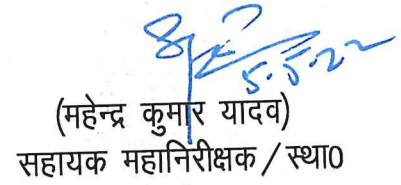 5.5.22
(महेन्द्र कुमार यादव)
सहायक महानिरीक्षक / स्था0